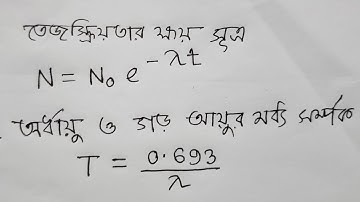 তেজস্ক্রিয়তার ক্ষয় সূত্র
N = N₀ e^{-λt}
অর্ধায়ু ও গড় আয়ুর মধ্যে সম্পর্ক
T = 0.693 / λ